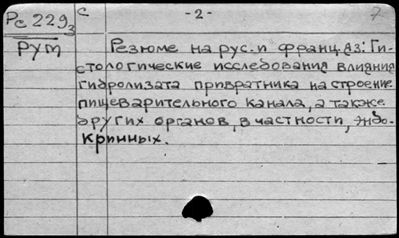 Рс 229з
с
- 2 -
7
Рум
Резюме на рус. и франц. яз: Ги-
стологические исследования влияния
гидролизата привратника на строение
пищеварительного канала, а также
других органов, в частности, эндо-
кринных.